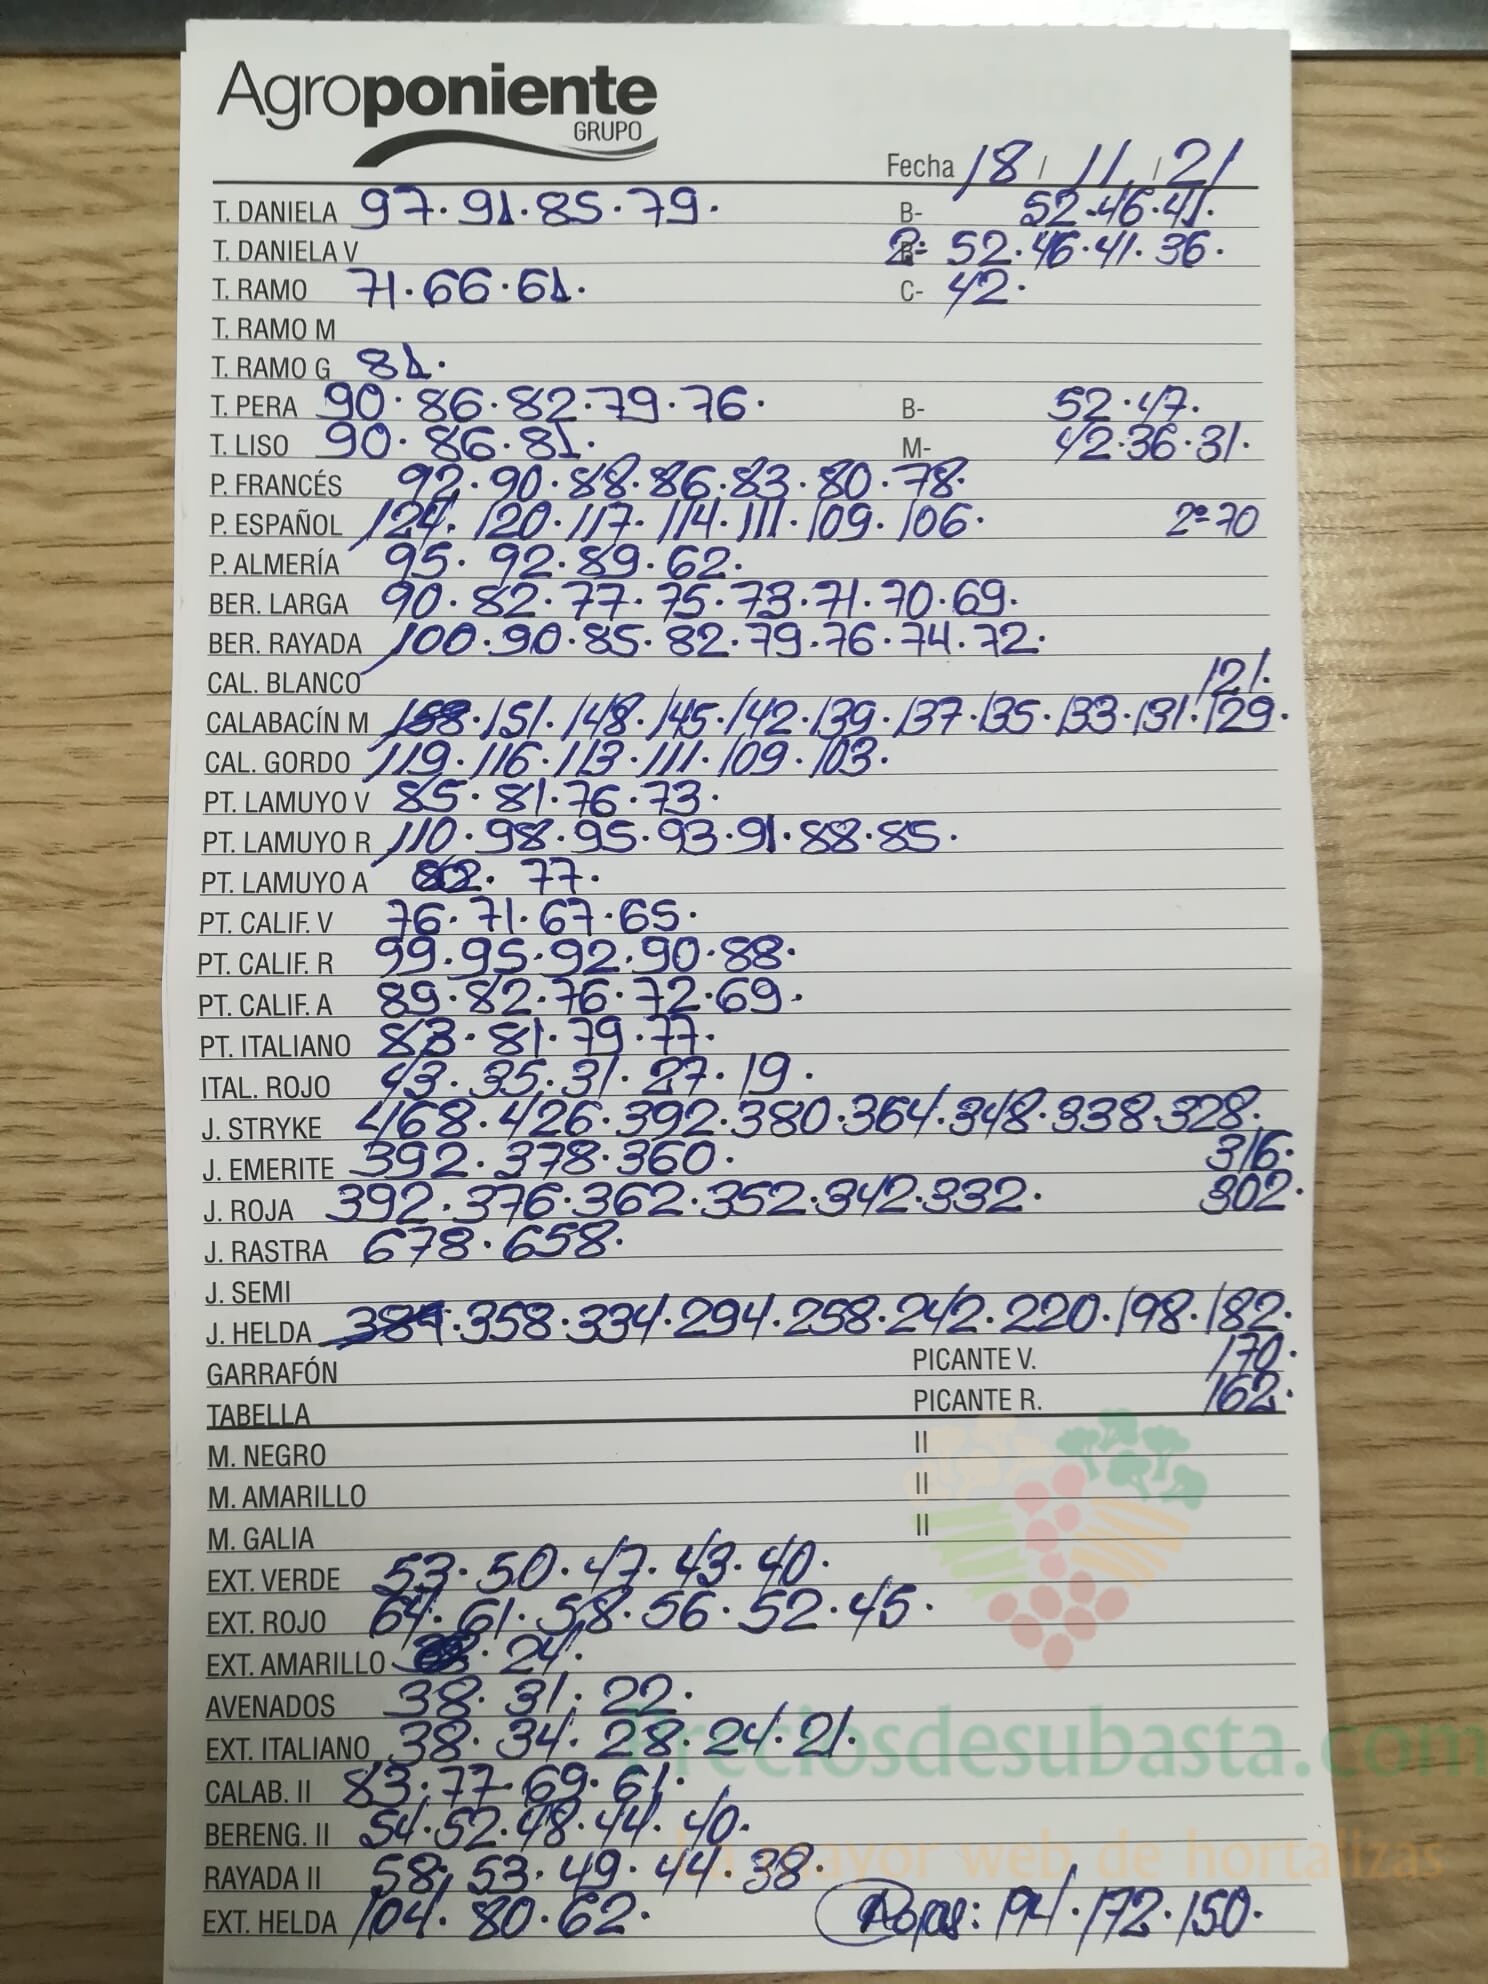 Agroponiente
GRUPO
Fecha 18 / 11 / 21
T. DANIELA 97. 91. 85. 79. B- 52. 46. 41.
T. DANIELA V 2= 52. 46. 41. 36.
T. RAMO 71. 66. 61. C- 42.
T. RAMO M
T. RAMO G 81.
T. PERA 90. 86. 82. 79. 76. B- 52. 47.
T. LISO 90. 86. 81. M- 42. 36. 31.
P. FRANCÉS 92. 90. 88. 86. 83. 80. 78.
P. ESPAÑOL 124. 120. 117. 114. 111. 109. 106. 2ª 70
P. ALMERÍA 95. 92. 89. 62.
BER. LARGA 90. 82. 77. 75. 73. 71. 70. 69.
BER. RAYADA 100. 90. 85. 82. 79. 76. 74. 72.
CAL. BLANCO 121.
CALABACÍN M 158. 151. 148. 145. 142. 139. 137. 135. 133. 131. 129.
CAL. GORDO 119. 116. 113. 111. 109. 103.
PT. LAMUYO V 85. 81. 76. 73.
PT. LAMUYO R 110. 98. 95. 93. 91. 88. 85.
PT. LAMUYO A 82. 77.
PT. CALIF. V 76. 71. 67. 65.
PT. CALIF. R 99. 95. 92. 90. 88.
PT. CALIF. A 89. 82. 76. 72. 69.
PT. ITALIANO 83. 81. 79. 77.
ITAL. ROJO 43. 35. 31. 27. 19.
J. STRYKE 468. 426. 392. 380. 364. 348. 338. 328.
J. EMERITE 392. 378. 360. 316.
J. ROJA 392. 376. 362. 352. 342. 332. 302.
J. RASTRA 678. 658.
J. SEMI
J. HELDA 384. 358. 334. 294. 258. 242. 220. 198. 182.
GARRAFÓN PICANTE V. 170.
TABELLA PICANTE R. 162.
M. NEGRO II
M. AMARILLO II
M. GALIA II
EXT. VERDE 53. 50. 47. 43. 40.
EXT. ROJO 64. 61. 58. 56. 52. 45.
EXT. AMARILLO 24.
AVENADOS 38. 31. 22.
EXT. ITALIANO 38. 34. 28. 24. 21.
Preciosdesubasta.com
CALAB. II 83. 77. 69. 61.
BERENG. II 54. 52. 48. 44. 40.
La mayor web de hortalizas
RAYADA II 58. 53. 49. 44. 38.
EXT. HELDA 104. 80. 62. Rojas: 194. 172. 150.